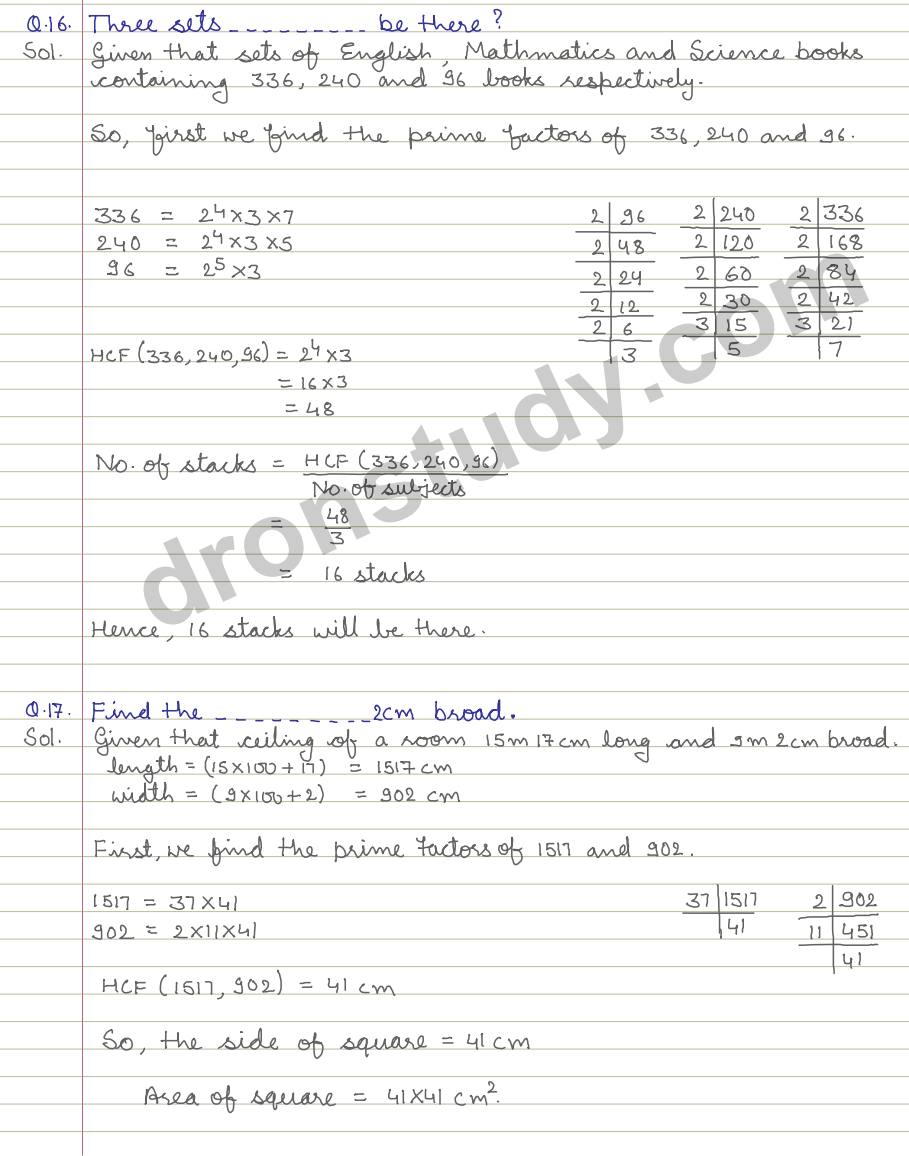 Q.16. Three sets ---------- be there?
Sol. Given that sets of English, Mathmatics and Science books
containing 336, 240 and 96 books respectively.
So, first we find the prime factors of 336, 240 and 96.
336 = 2⁴×3×7
240 = 2⁴×3×5
96 = 2⁵×3
2 | 96
2 | 48
2 | 24
2 | 12
2 | 6
| 3
2 | 240
2 | 120
2 | 60
2 | 30
3 | 15
| 5
2 | 336
2 | 168
2 | 84
2 | 42
3 | 21
| 7
HCF (336, 240, 96) = 2⁴×3
= 16×3
= 48
No. of stacks = HCF (336, 240, 96)
No. of subjects
= 48
3
= 16 stacks
Hence, 16 stacks will be there.
dronstudy.com
Q.17. Find the ---------- 2cm broad.
Sol. Given that ceiling of a room 15m 17cm long and 9m 2cm broad.
length = (15×100+17) = 1517 cm
width = (9×100+2) = 902 cm
First, we find the prime factors of 1517 and 902.
1517 = 37×41
902 = 2×11×41
37 | 1517
| 41
2 | 902
11 | 451
| 41
HCF (1517, 902) = 41 cm
So, the side of square = 41 cm
Area of square = 41×41 cm².